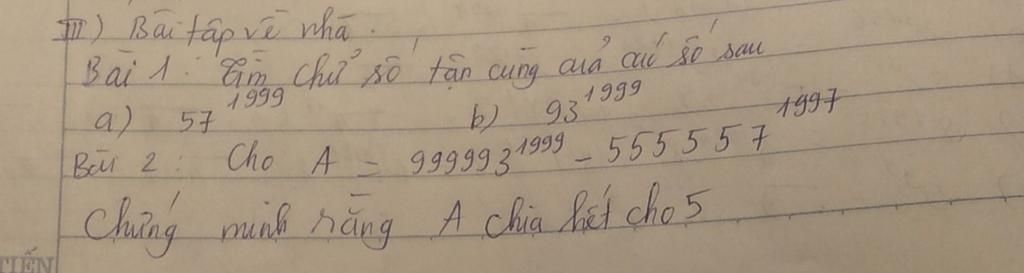 III) Bài tập về nhà.
Bài 1: Tìm chữ số tận cùng của các số sau
a) 57^1999 b) 93^1999
Bài 2: Cho A = 999993^1999 - 555557^1997
Chứng minh rằng A chia hết cho 5
TIẾN